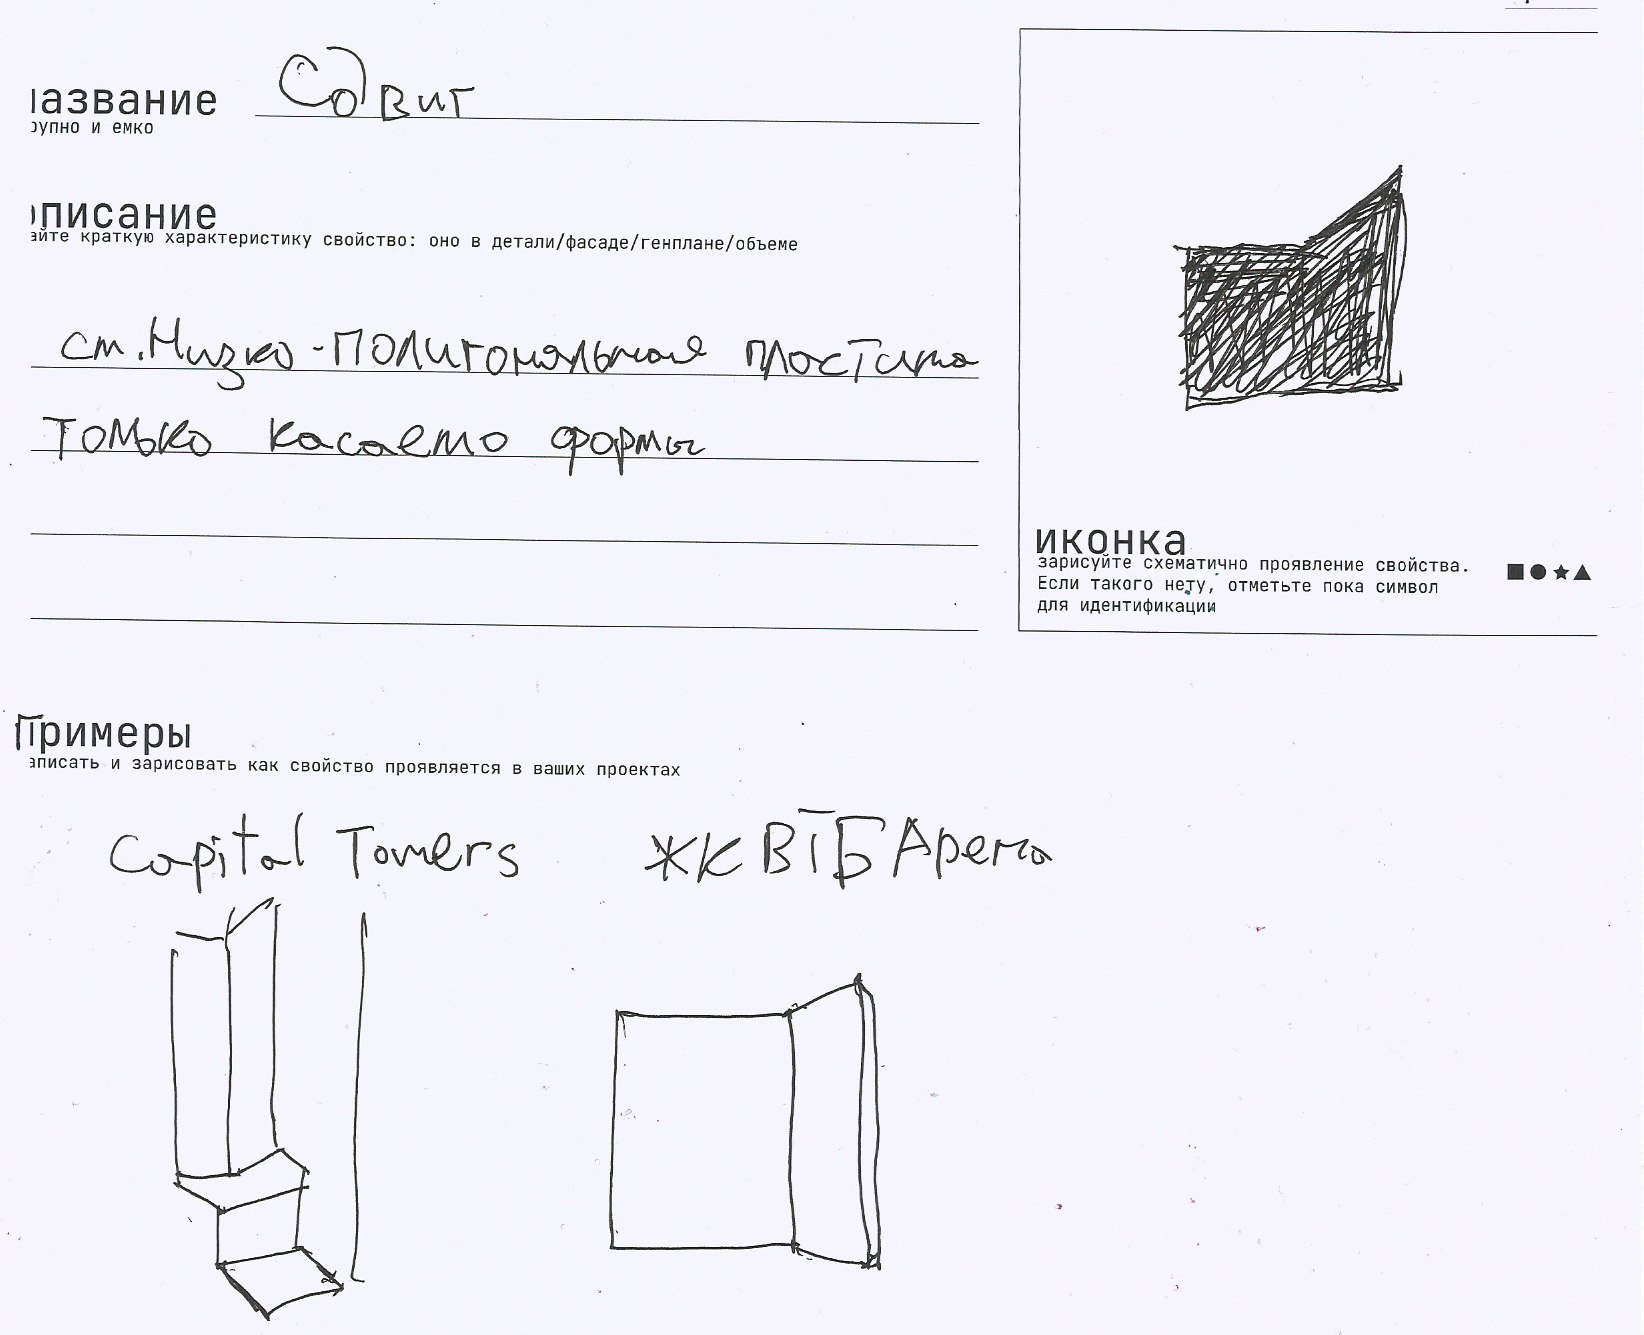 название
Сдвиг
рупно и емко
описание
айте краткую характеристику свойство: оно в детали/фасаде/генплане/объеме
см. Низко-полигональная пластика
только касаемо формы
иконка
зарисуйте схематично проявление свойства.
Если такого нету, отметьте пока символ
для идентификации
Примеры
аписать и зарисовать как свойство проявляется в ваших проектах
Capital Towers
ЖК ВТБ Арена